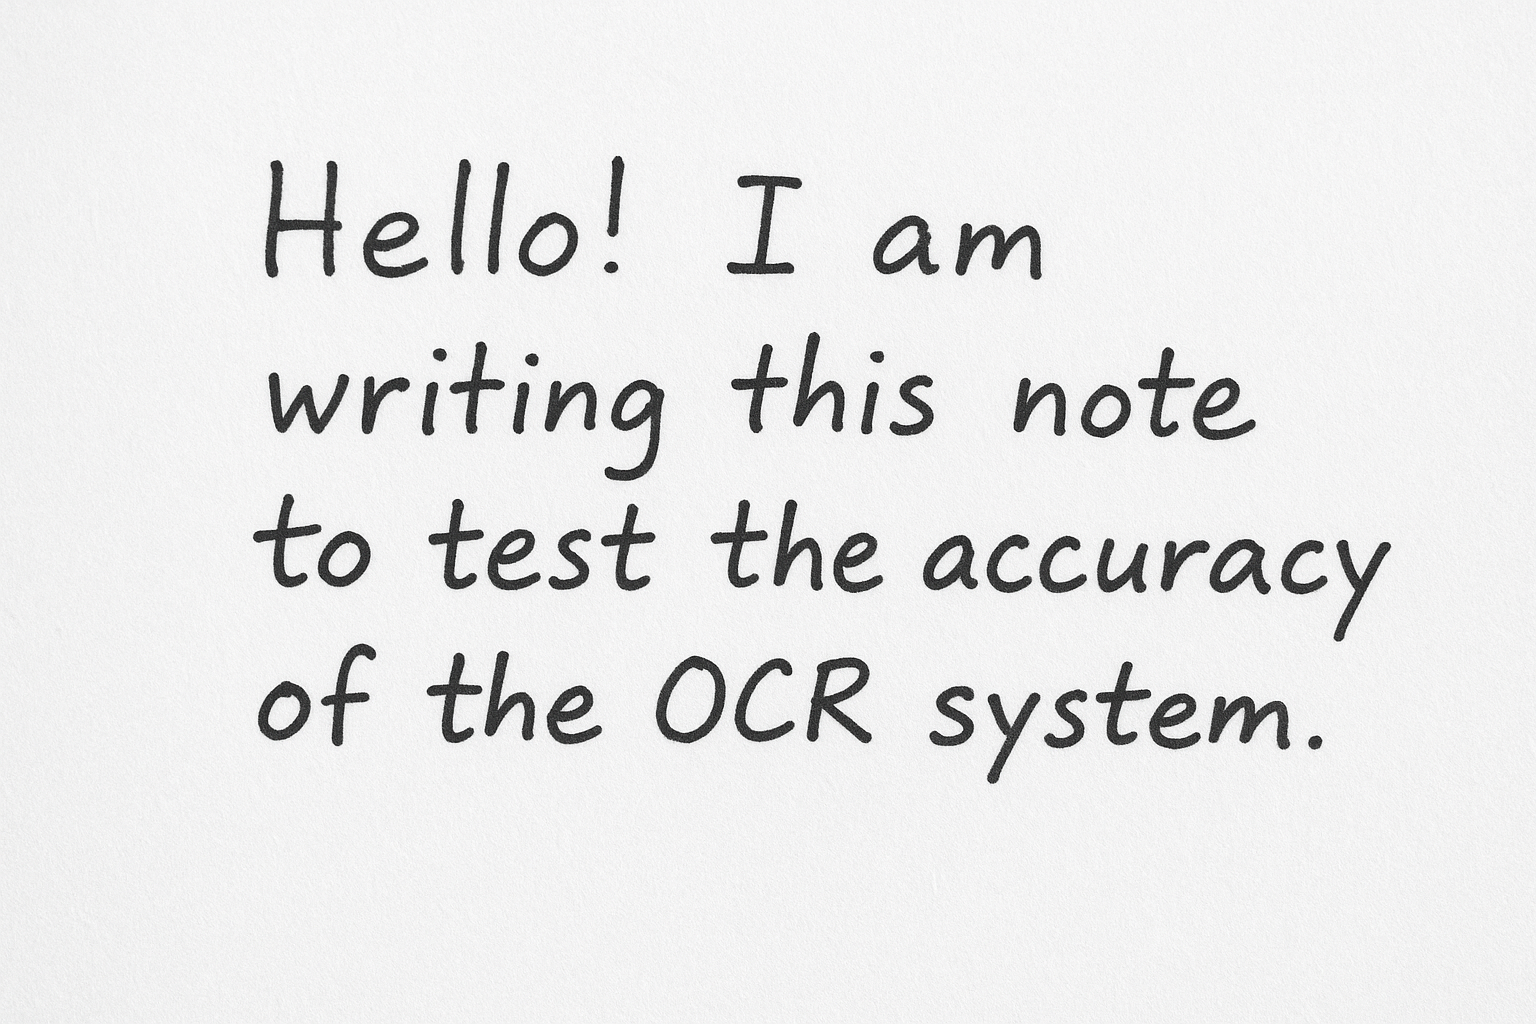 Hello! I am
writing this note
to test the accuracy
of the OCR system.